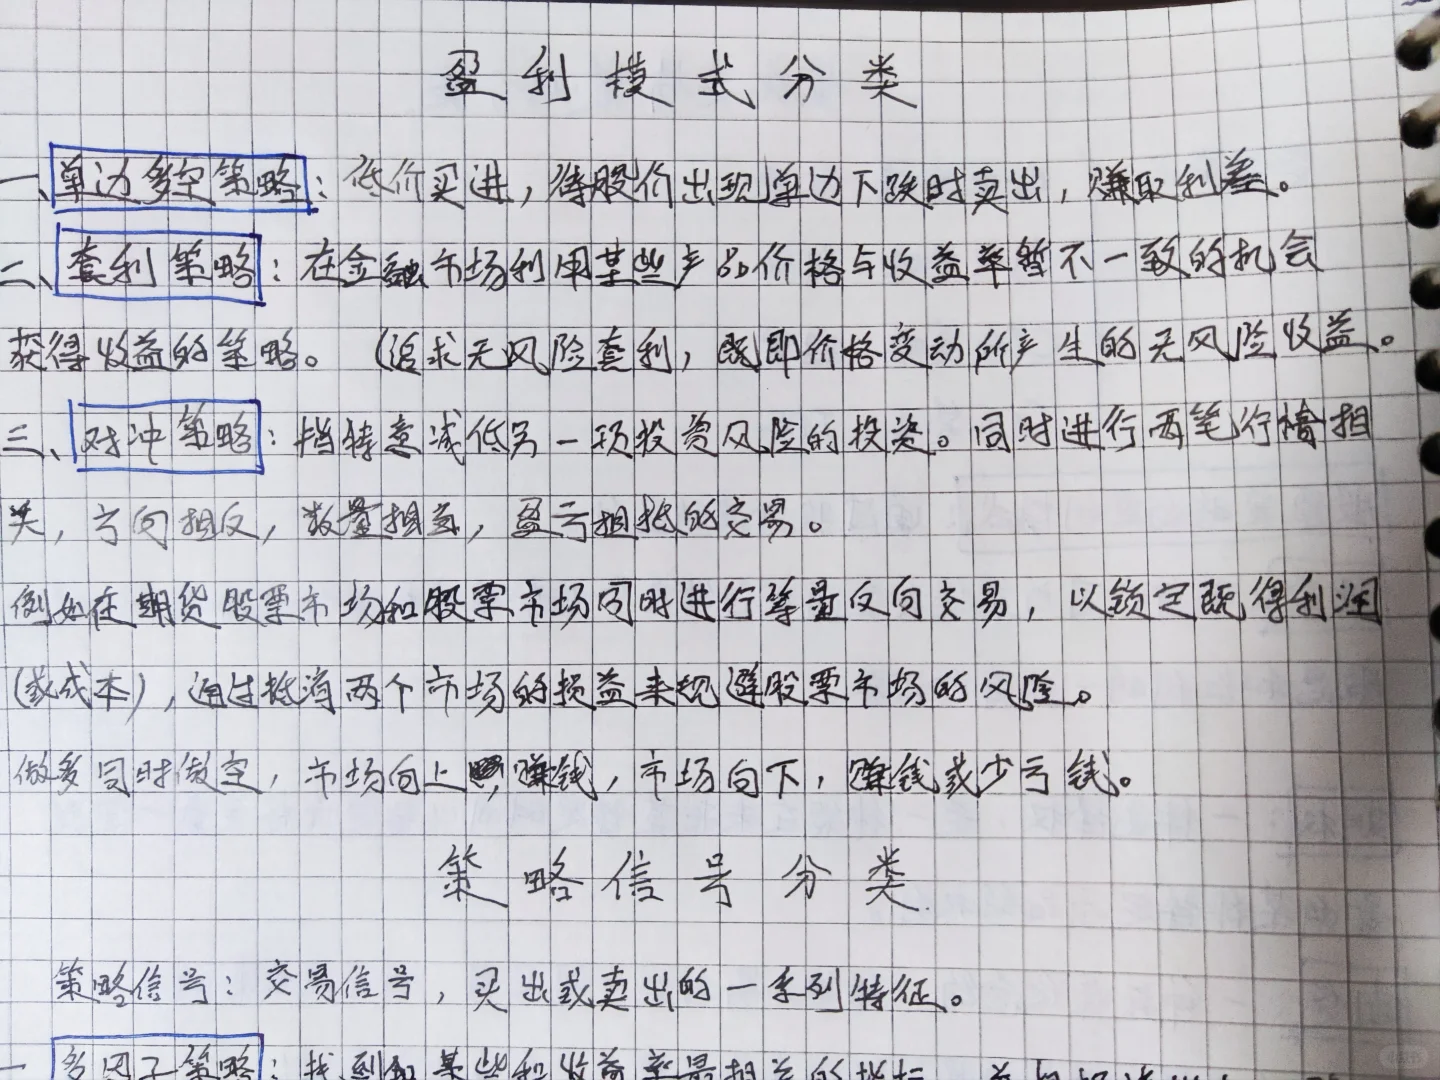 盈利模式分类
一、单边多空策略：低价买进，待股价出现单边下跌时卖出，赚取利差。
二、套利策略：在金融市场利用某些产品价格与收益率暂不一致的机会
获得收益的策略。（追求无风险套利，既即价格变动所产生的无风险收益。
三、对冲策略：指特意减低另一项投资风险的投资。同时进行两笔行情相
关，方向相反，数量相当，盈亏相抵的交易。
例如在期货股票市场和股票市场同时进行等量反向交易，以锁定既得利润
（或成本），通过抵消两个市场的损益来规避股票市场的风险。
做多同时做空，市场向上，赚钱，市场向下，赚钱或少亏钱。
策略信号分类
策略信号：交易信号，买出或卖出的一系列特征。
一 多因子策略：找到和某些和收益率最相关的指标